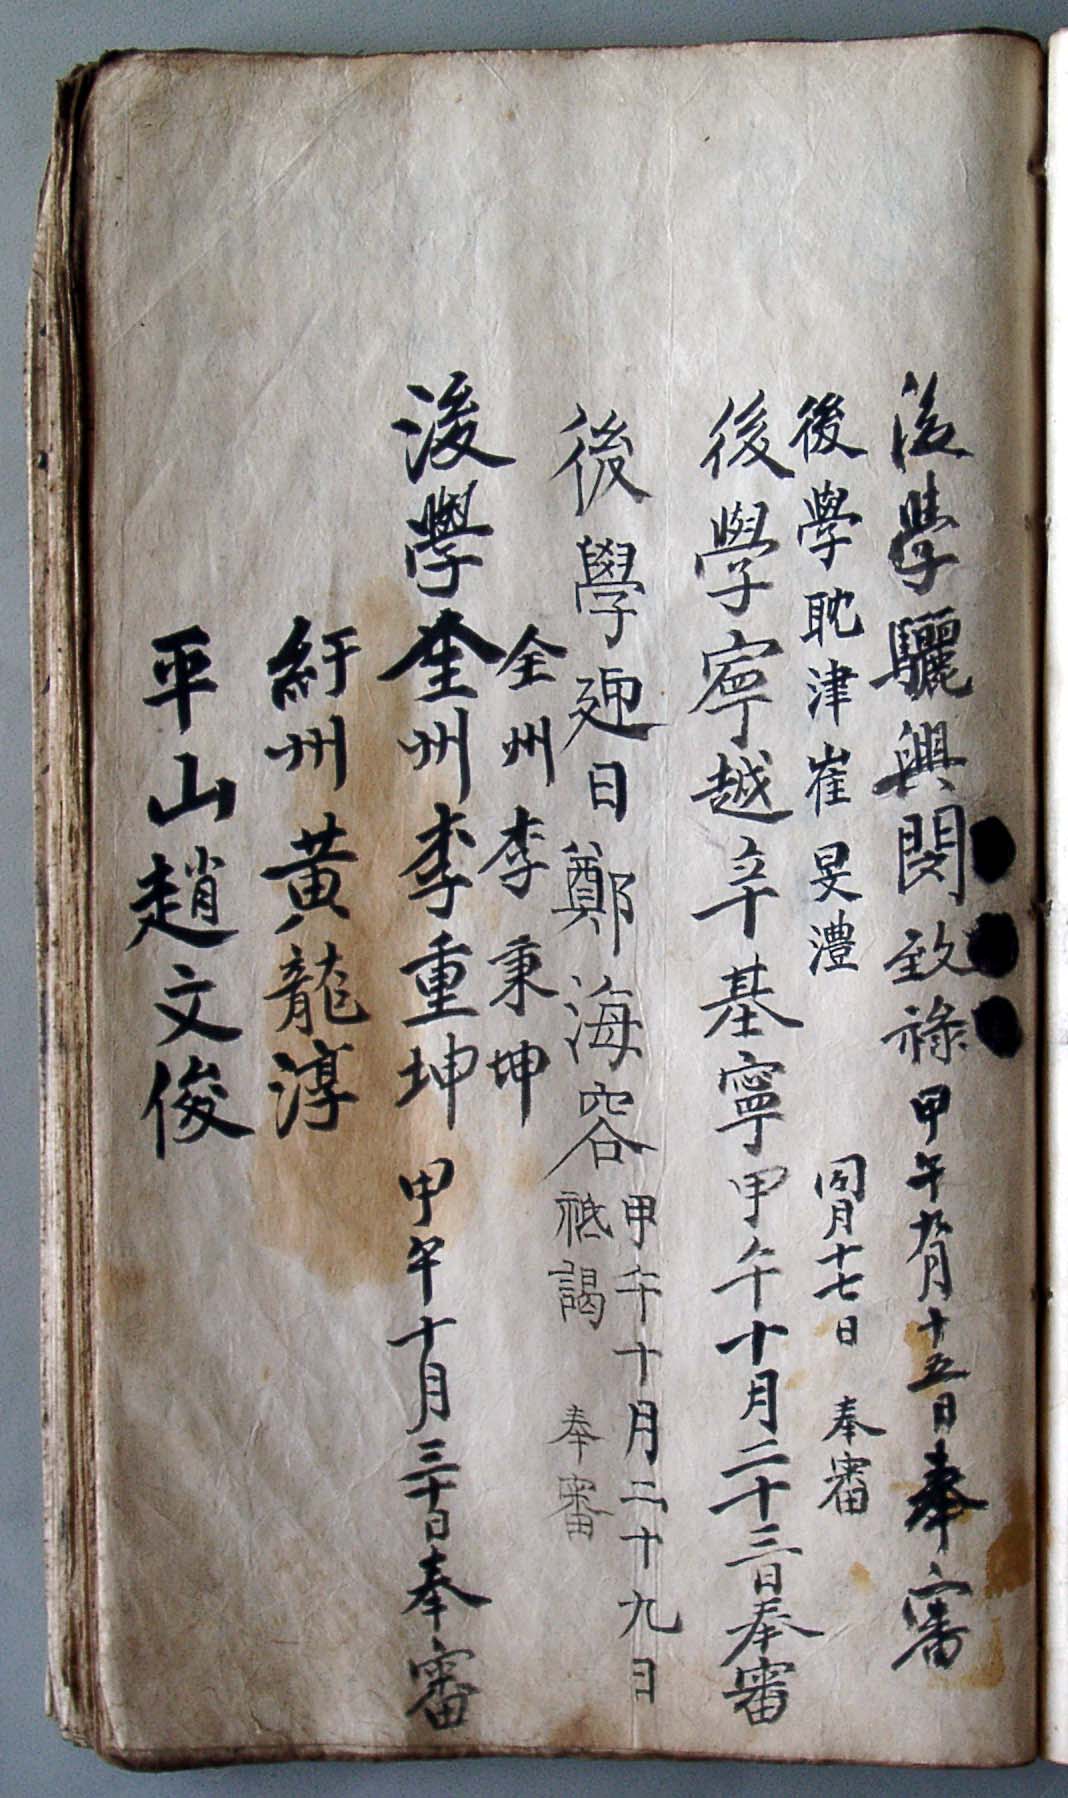 後學驪興閔致祿甲午九月十五日奉審
後學耽津崔旻澧 同月十七日 奉審
後學寧越辛基寧甲午十月二十三日奉審
後學迎日鄭海容祗謁 奉審
甲午十月二十九日
全州李秉坤
後學全州李重坤 甲午十月三十日奉審
紆州黃龍淳
平山趙文俊